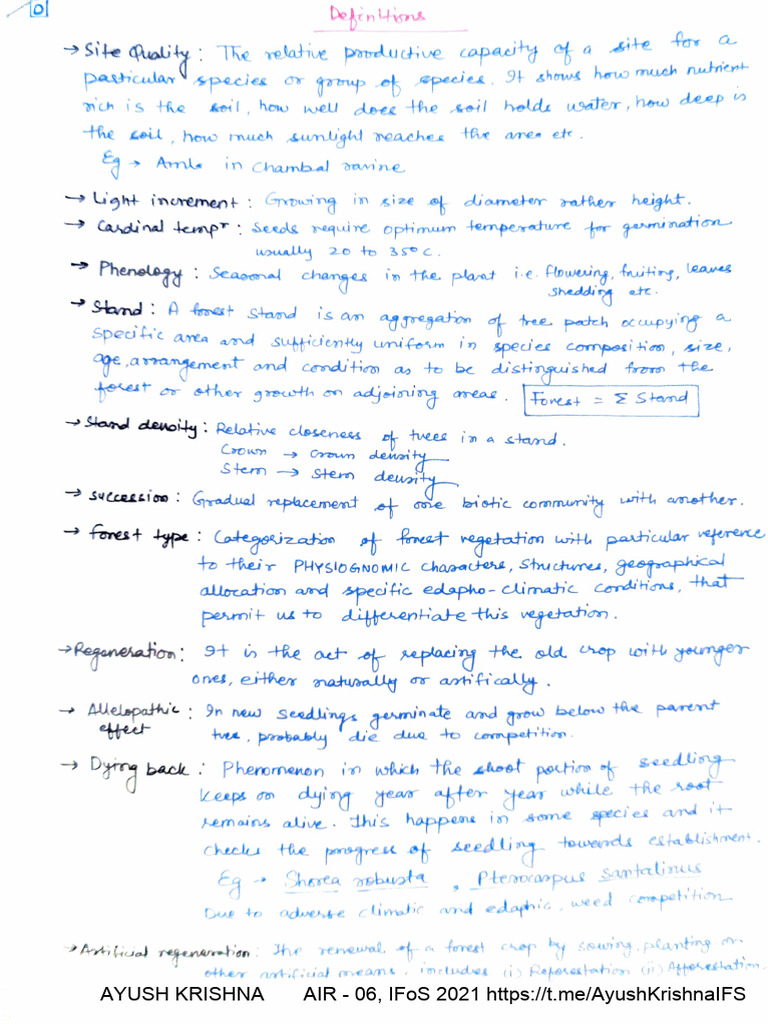 01
Definitions
→ Site Quality : The relative productive capacity of a site for a
particular species or group of species. It shows how much nutrient
rich is the soil, how well does the soil holds water, how deep is
the soil, how much sunlight reaches the area etc.
Eg → Amla in Chambal ravine
→ Light increment : Growing in size of diameter rather height.
→ Cardinal tempr : Seeds require optimum temperature for germination
usually 20 to 35°C.
→ Phenology : Seasonal changes in the plant i.e. flowering, fruiting, leaves
shedding etc.
→ Stand : A forest stand is an aggregation of tree patch occupying a
specific area and sufficiently uniform in species composition, size,
age, arrangement and condition as to be distinguished from the
forest or other growth on adjoining areas. Forest = Σ Stand
→ Stand density : Relative closeness of trees in a stand.
Crown → Crown density
Stem → Stem density
→ succession : Gradual replacement of one biotic community with another.
→ forest type : Categorization of forest vegetation with particular reference
to their PHYSIOGNOMIC characters, structures, geographical
allocation and specific edapho-climatic conditions, that
permit us to differentiate this vegetation.
→ Regeneration : It is the act of replacing the old crop with younger
ones, either naturally or artifically.
→ Allelopathic : In new seedlings germinate and grow below the parent
effect tree, probably die due to competition.
→ Dying back : Phenomenon in which the shoot portion of seedling
keeps on dying year after year while the root
remains alive. This happens in some species and it
checks the progress of seedling towards establishment.
Eg → Shorea robusta, Pterocarpus santalinus
Due to adverse climatic and edaphic, weed competition
→ Artificial regeneration : The renewal of a forest crop by sowing, planting or
other artificial means, includes (i) Reforestation (ii) Afforestation.
AYUSH KRISHNA AIR - 06, IFoS 2021 https://t.me/AyushKrishnaIFS